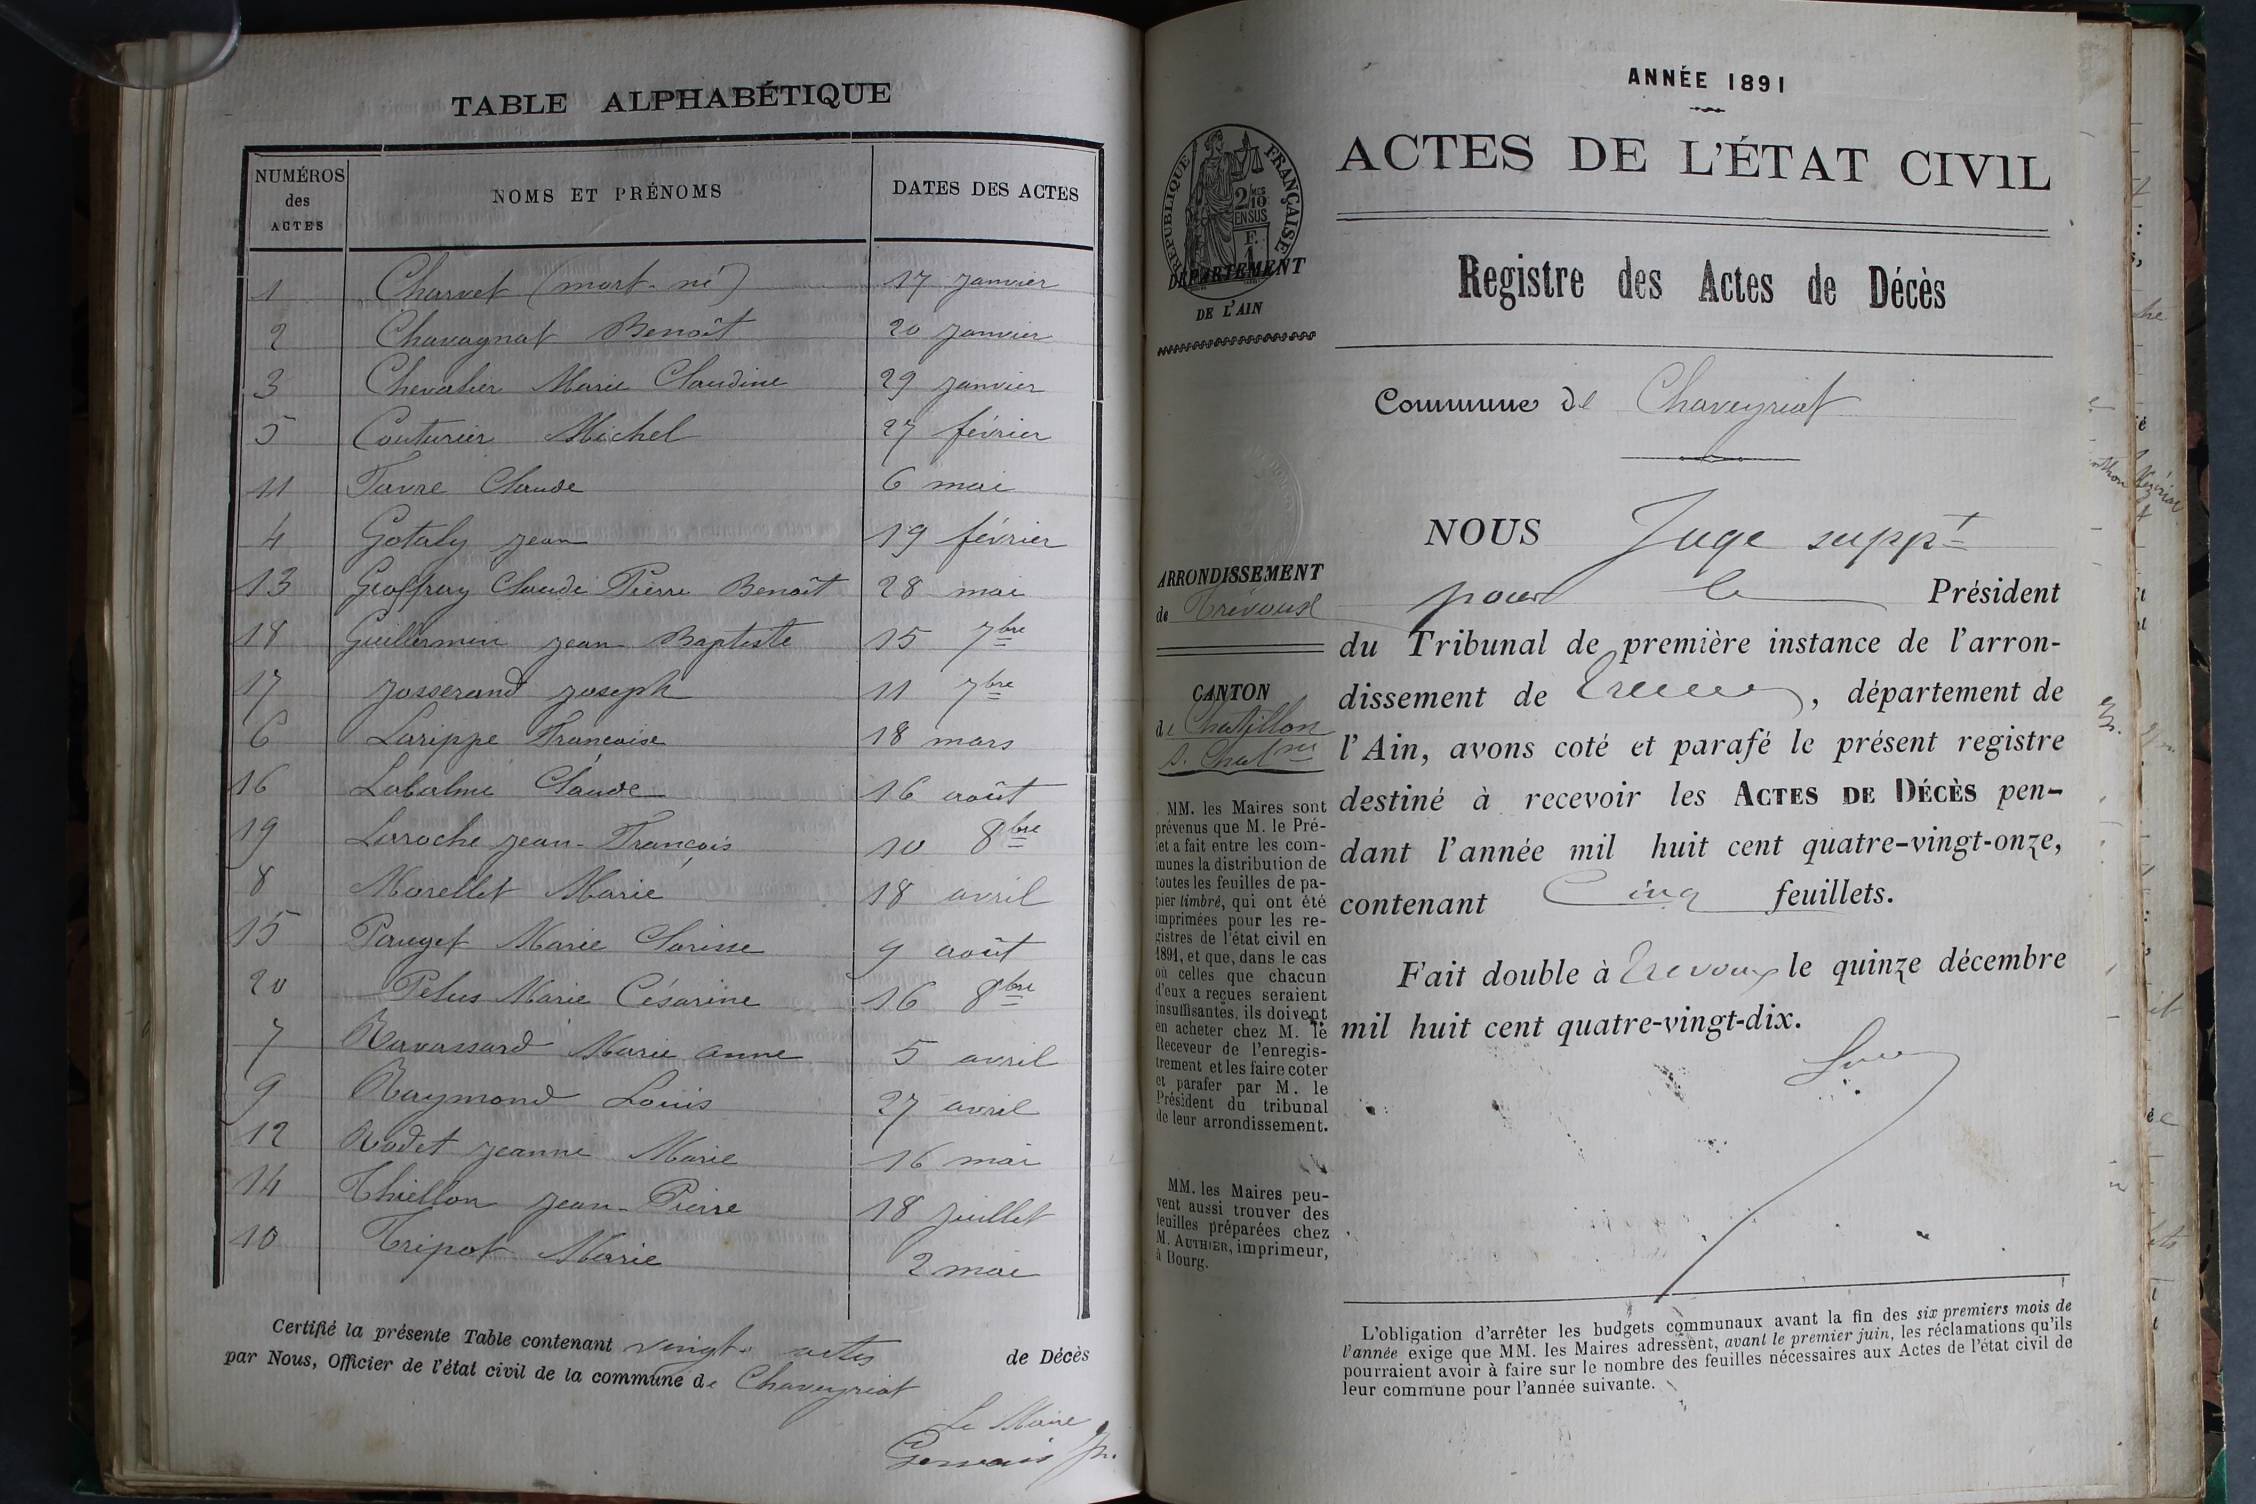 TABLE ALPHABÉTIQUE
NUMÉROS des ACTES NOMS ET PRÉNOMS DATES DES ACTES
1 Charvet (mort-né) 17 janvier
2 Chavagnat Benoît 20 janvier
3 Chevalier Marie Claudine 29 janvier
5 Couturier Michel 27 février
11 Favre Claude 6 mai
4 Gotaly jean 19 février
13 Geoffray Claude Pierre Benoît 28 mai
18 Guillermin jean Baptiste 15 7bre
17 Josserand joseph 11 7bre
6 Larippe Francoise 18 mars
16 Labalme Claude 16 août
19 Larroche jean-François 10 8bre
8 Morellet Marie 18 avril
15 Pauget Marie Clarisse 9 août
20 Pelus Marie Césarine 16 8bre
7 Ravassard Marie anne 5 avril
9 Raymond Louis 27 avril
12 Rodet jeanne Marie 16 mai
14 Thiellon jean-Pierre 18 juillet
10 Tripot Marie 2 mai
Certifié la présente Table contenant vingt actes de Décès
par Nous, Officier de l'état civil de la commune de Chaveyriat
Le Maire
Gervais
ANNÉE 1891
ACTES DE L'ÉTAT CIVIL
RÉPUBLIQUE FRANÇAISE
2/10
EN SUS
DÉPARTEMENT
DE L'AIN
Registre des Actes de Décès
Commune de Chaveyriat
ARRONDISSEMENT
de Trévoux
CANTON
de Chatillon
s. Chalne
MM. les Maires sont
prévenus que M. le Pré-
fet a fait entre les com-
munes la distribution de
toutes les feuilles de pa-
pier timbré, qui ont été
imprimées pour les re-
gistres de l'état civil en
1891, et que, dans le cas
où celles que chacun
d'eux a reçues seraient
insuffisantes, ils doivent
en acheter chez M. le
Receveur de l'enregis-
trement et les faire coter
et parafer par M. le
Président du tribunal
de leur arrondissement.
MM. les Maires peu-
vent aussi trouver des
feuilles préparées chez
M. AUTHIER, imprimeur,
à Bourg.
NOUS Juge suppt
pour le Président
du Tribunal de première instance de l'arron-
dissement de Trevoux, département de
l'Ain, avons coté et parafé le présent registre
destiné à recevoir les ACTES DE DÉCÈS pen-
dant l'année mil huit cent quatre-vingt-onze,
contenant Cinq feuillets.
Fait double à Trevoux le quinze décembre
mil huit cent quatre-vingt-dix.
L'obligation d'arrêter les budgets communaux avant la fin des six premiers mois de
l'année exige que MM. les Maires adressent, avant le premier juin, les réclamations qu'ils
pourraient avoir à faire sur le nombre des feuilles nécessaires aux Actes de l'état civil de
leur commune pour l'année suivante.